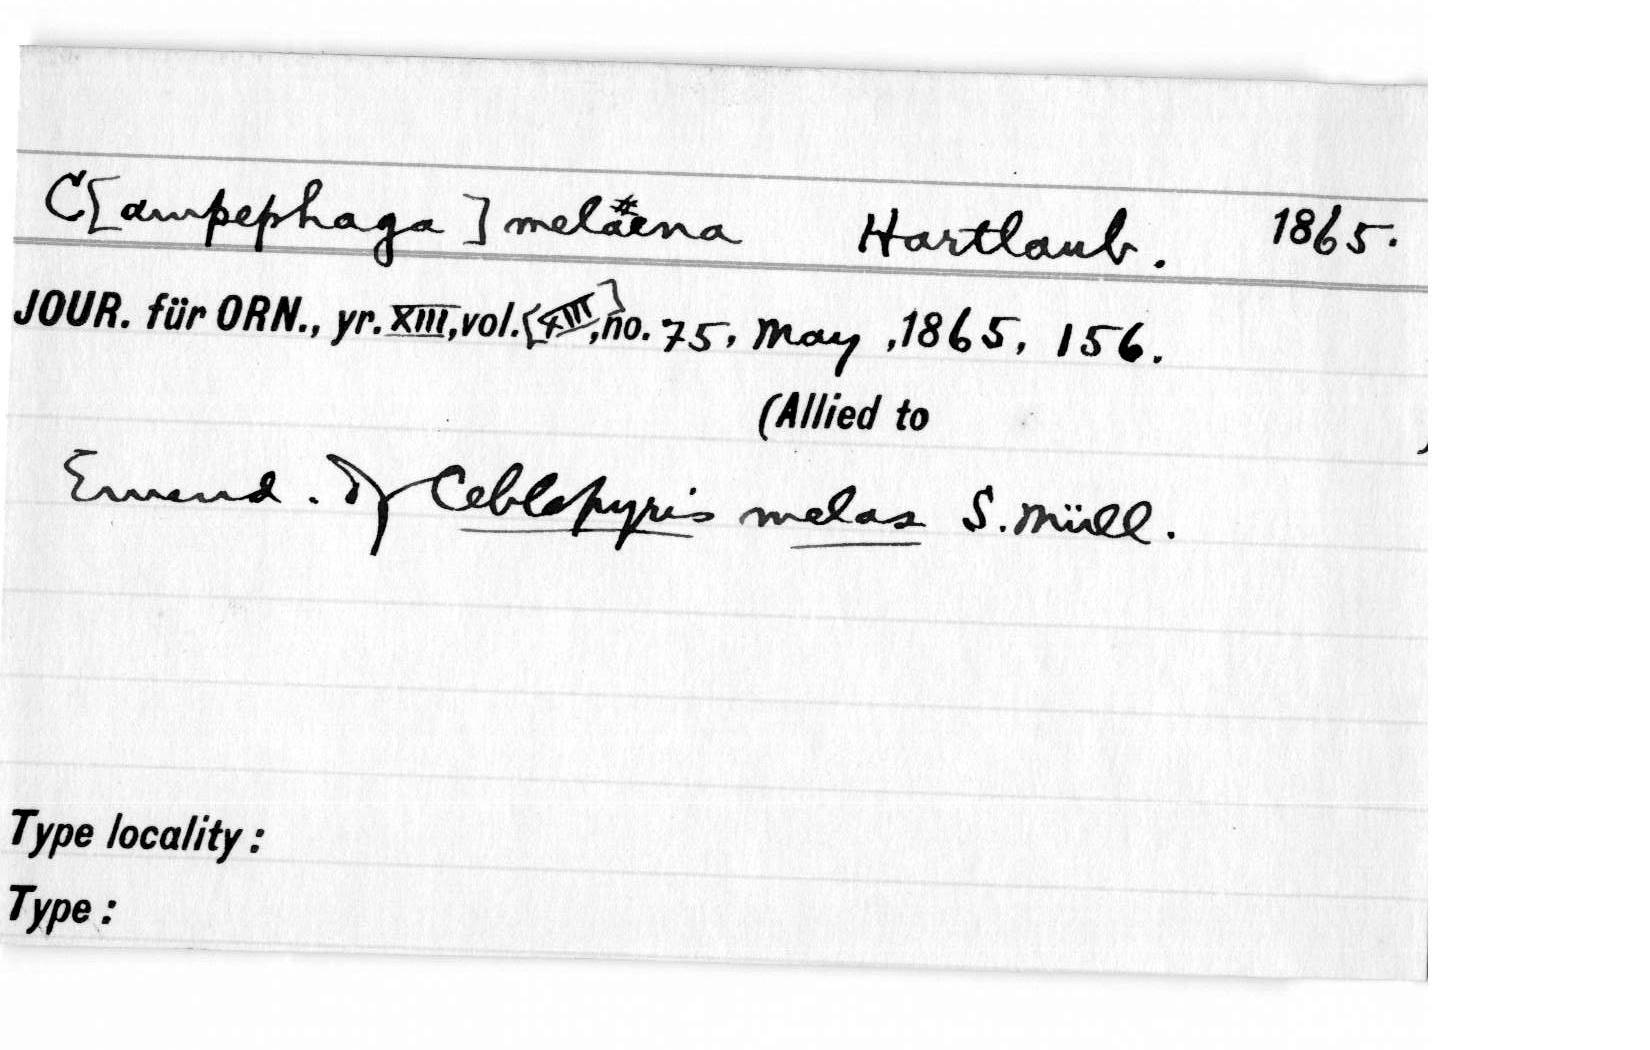 C[ampephaga] melaena Hartlaub. 1865.
JOUR. für ORN., yr. XIII, vol. [XIII], no. 75, May, 1865, 156.
(Allied to )
Emend. of Ceblepyris melas S. Müll.
Type locality:
Type: